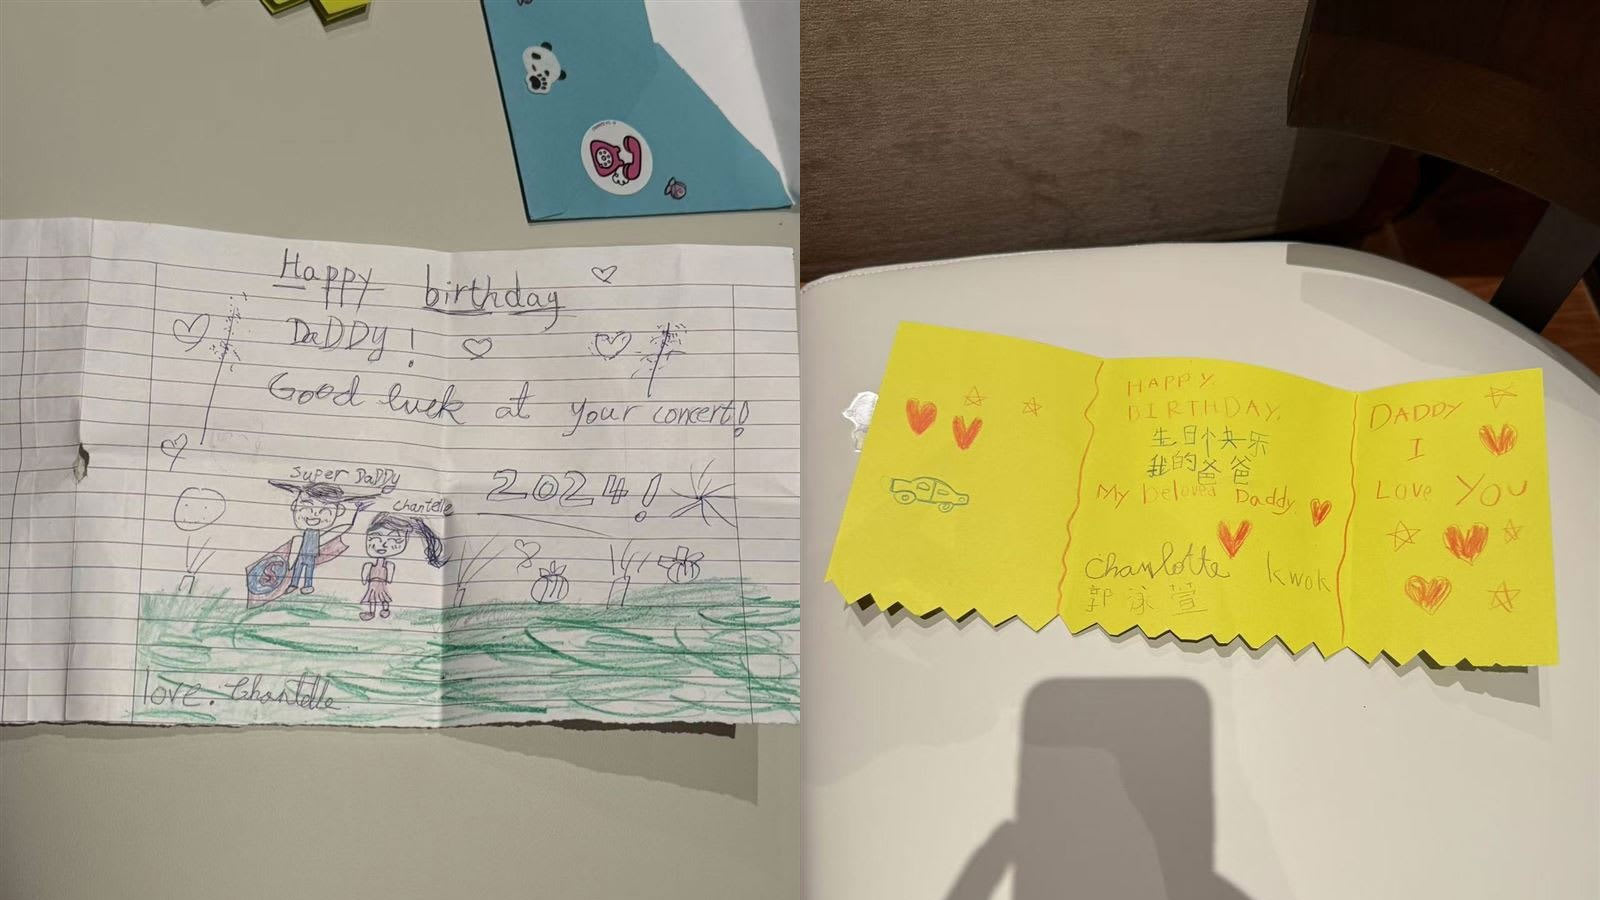 Happy birthday
DaDDy!
Good luck at your concert!
super DaDDy
chantelle
2024!
S
love. Chantelle
HAPPY
BIRTHDAY.
生日快乐
我的爸爸
My beloved Daddy.
charlotte kwok
郭泳萱
DADDY
I
Love YOU